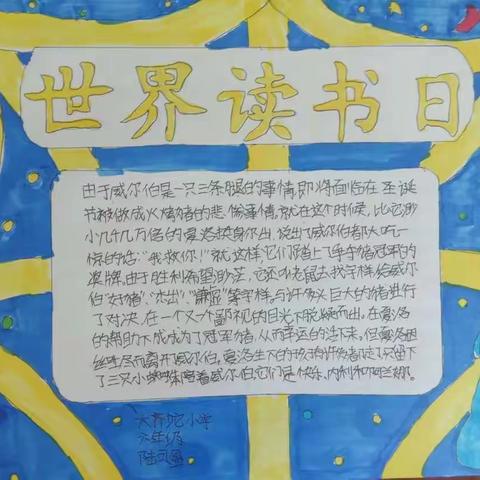 世界读书日
由于威尔伯是一只三条腿的事情,即将面临在圣诞
节被做成火烤猪的悲伤事情,就在这个时候,比它渺
小几千几万倍的夏洛挺身而出,说出了威尔伯都大吃一
惊的话:“我救你!”就这样,它们踏上了争夺猪冠军的
奖牌。由于胜利希望渺茫,它还叫老鼠去找字样给威尔
伯“好猪”、“杰出”、“谦虚”等字样。与许多又巨大的猪进行
了对决,在一个又一个鄙视的目光下脱颖而出,在夏洛
的帮助下成成为了冠军猪,从而幸运的活下来。但夏洛因
丝吐尽而离开威尔伯,夏洛生下的孩子许多都走了只留下
了三只小蜘蛛陪着威尔伯,它们是快乐、内利和阿兰娜。
小学
六年级